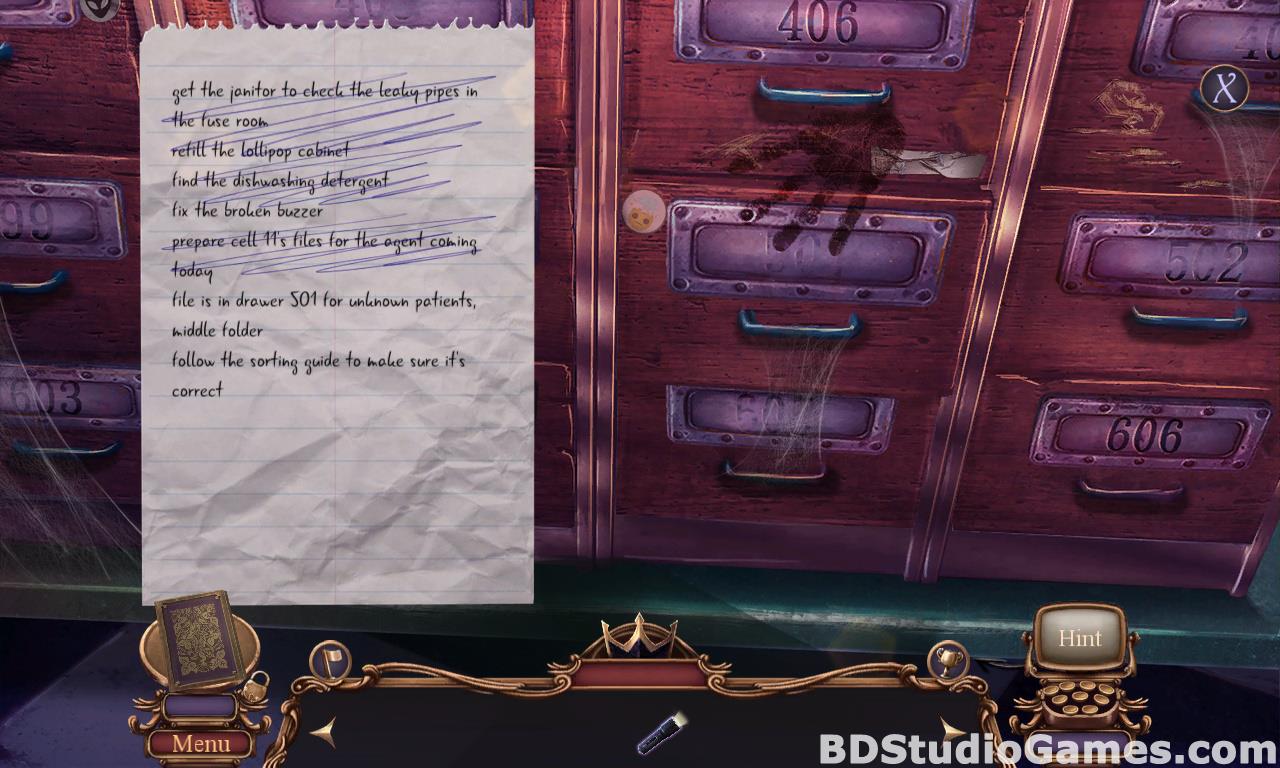 406
get the janitor to check the leaky pipes in
the fuse room
refill the lollipop cabinet
find the dishwashing detergent
fix the broken buzzer
prepare cell 11's files for the agent coming
today
file is in drawer 501 for unknown patients,
middle folder
follow the sorting guide to make sure it's
correct
X
99
502
603
606
Hint
Menu
BDStudioGames.com